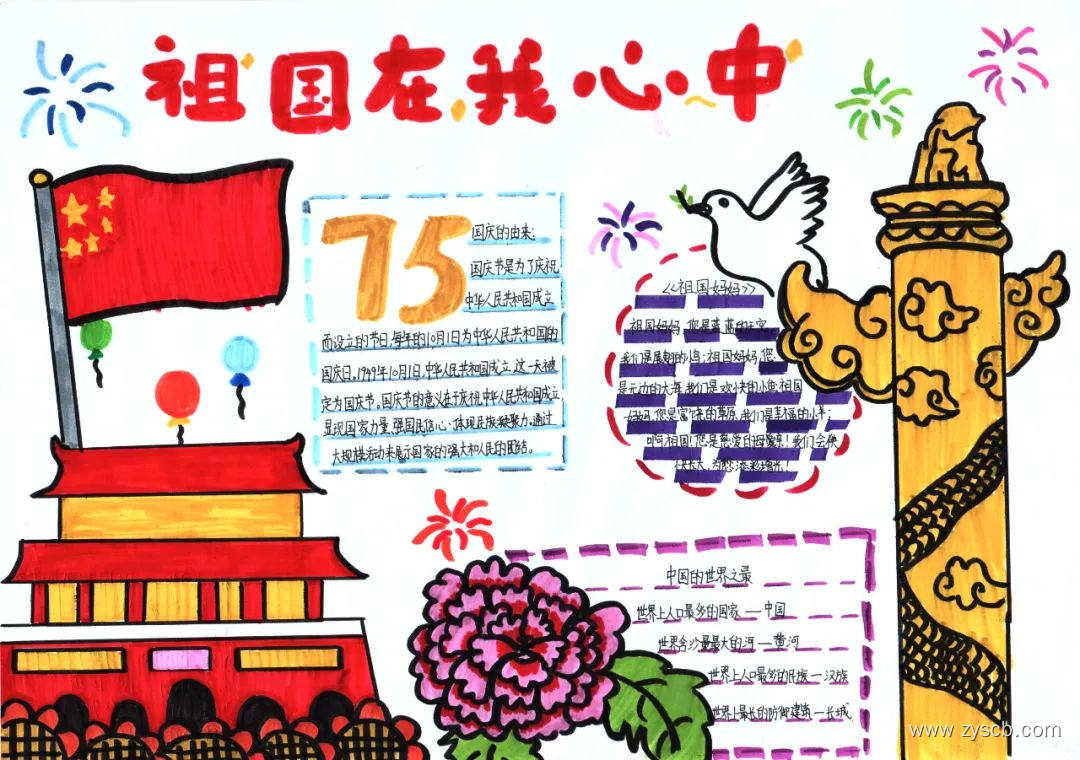 祖国在我心中
75
国庆的由来:
国庆节是为了庆祝
中华人民共和国成立
而设立的节日,每年的10月1日为中华人民共和国的
国庆日,1949年10月1日,中华人民共和国成立,这一天被
定为国庆节。国庆节的意义在于庆祝中华人民共和国成立,
显现国家力量,强国民信心,体现民族凝聚力,通过
大规模活动来展示国家的强大和人民的团结。
<<祖国妈妈>>
祖国妈妈,您是蓝蓝的天空,
我们是展翅的小鸟;祖国妈妈,您
是无边的大海,我们是欢快的小鱼;祖国
妈妈,您是富饶的草原,我们是幸福的小羊;
啊,祖国!您是慈爱的母亲!我们会
快快长大,为您添彩增光!
中国的世界之最
世界上人口最多的国家——中国
世界含沙量最大的河—黄河
世界上人口最多的民族—汉族
世界上最长的防御建筑—长城
www.zyscb.com